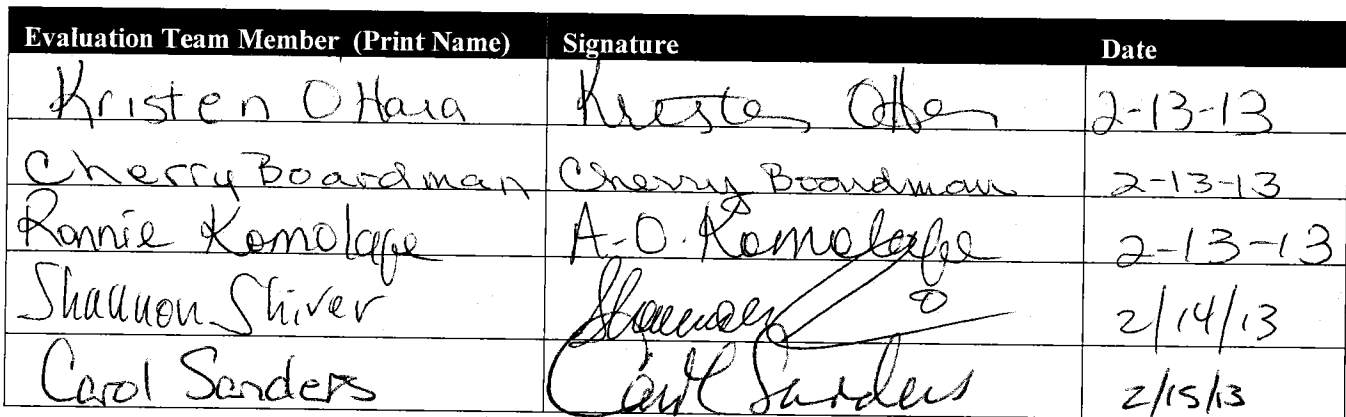 Evaluation Team Member (Print Name) Signature Date
Kristen OHara Kristen OHara 2-13-13
Cherry Boardman Cherry Boardman 2-13-13
Ronnie Komolafe A.O. Komolafe 2-13-13
Shannon Shiver Shannon 2/14/13
Carol Sanders Carol Sanders 2/15/13